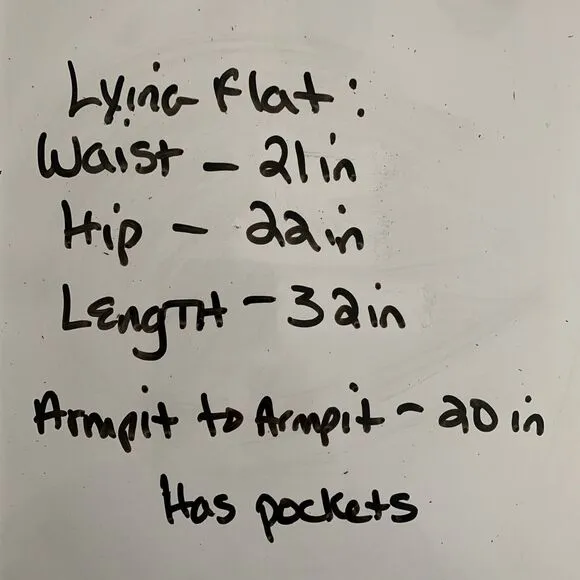 Lying Flat:
Waist - 21 in
Hip - 22 in
Length - 32 in
Armpit to Armpit - 20 in
Has pockets